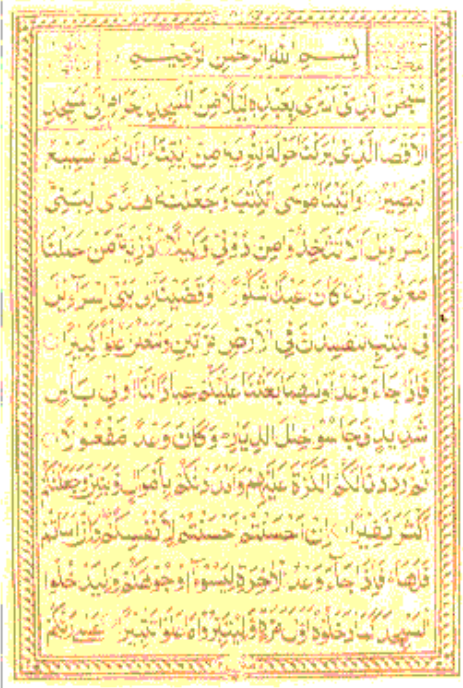 بِسْمِ اللهِ الرَّحْمٰنِ الرَّحِيْمِ
سُبْحٰنَ الَّذِىْٓ اَسْرٰى بِعَبْدِهٖ لَيْلًا مِّنَ الْمَسْجِدِ الْحَرَامِ اِلَى الْمَسْجِدِ
الْاَقْصَا الَّذِىْ بٰرَكْنَا حَوْلَهٗ لِنُرِيَهٗ مِنْ اٰيٰتِنَا اِنَّهٗ هُوَ السَّمِيْعُ
الْبَصِيْرُ وَاٰتَيْنَا مُوْسَى الْكِتٰبَ وَجَعَلْنٰهُ هُدًى لِّبَنِىْٓ
اِسْرَآءِيْلَ اَلَّا تَتَّخِذُوْا مِنْ دُوْنِىْ وَكِيْلًا ذُرِّيَّةَ مَنْ حَمَلْنَا
مَعَ نُوْحٍ اِنَّهٗ كَانَ عَبْدًا شَكُوْرًا وَقَضَيْنَآ اِلٰى بَنِىْٓ اِسْرَآءِيْلَ
فِى الْكِتٰبِ لَتُفْسِدُنَّ فِى الْاَرْضِ مَرَّتَيْنِ وَلَتَعْلُنَّ عُلُوًّا كَبِيْرًا
فَاِذَا جَآءَ وَعْدُ اُوْلٰىهُمَا بَعَثْنَا عَلَيْكُمْ عِبَادًا لَّنَآ اُولِىْ بَاْسٍ
شَدِيْدٍ فَجَاسُوْا خِلٰلَ الدِّيَارِ وَكَانَ وَعْدًا مَّفْعُوْلًا
ثُمَّ رَدَدْنَا لَكُمُ الْكَرَّةَ عَلَيْهِمْ وَاَمْدَدْنٰكُمْ بِاَمْوَالٍ وَّبَنِيْنَ وَجَعَلْنٰكُمْ
اَكْثَرَ نَفِيْرًا اِنْ اَحْسَنْتُمْ اَحْسَنْتُمْ لِاَنْفُسِكُمْ وَاِنْ اَسَاْتُمْ
فَلَهَا فَاِذَا جَآءَ وَعْدُ الْاٰخِرَةِ لِيَسُوْٓءٗا وُجُوْهَكُمْ وَلِيَدْخُلُوا
الْمَسْجِدَ كَمَا دَخَلُوْهُ اَوَّلَ مَرَّةٍ وَّلِيُتَبِّرُوْا مَا عَلَوْا تَتْبِيْرًا عَسٰى رَبُّكُمْ